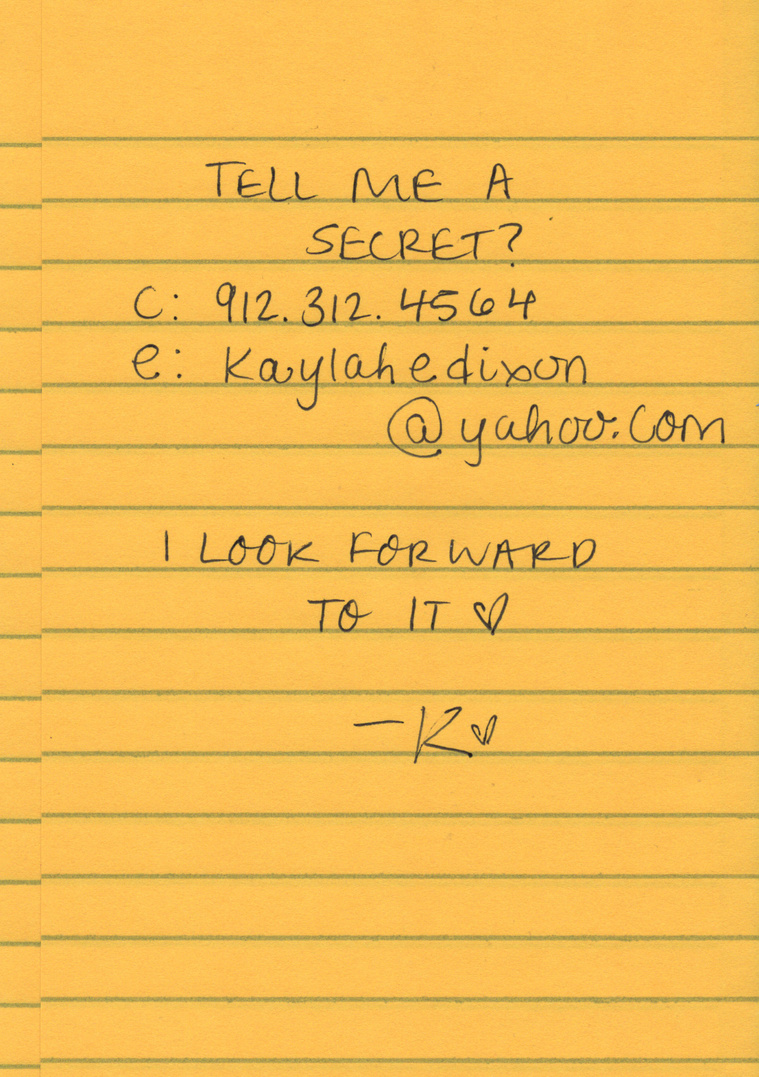 TELL ME A
SECRET?
C: 912.312.4564
e: kaylahedixon
@yahoo.com
I LOOK FORWARD
TO IT ♡
-K♡